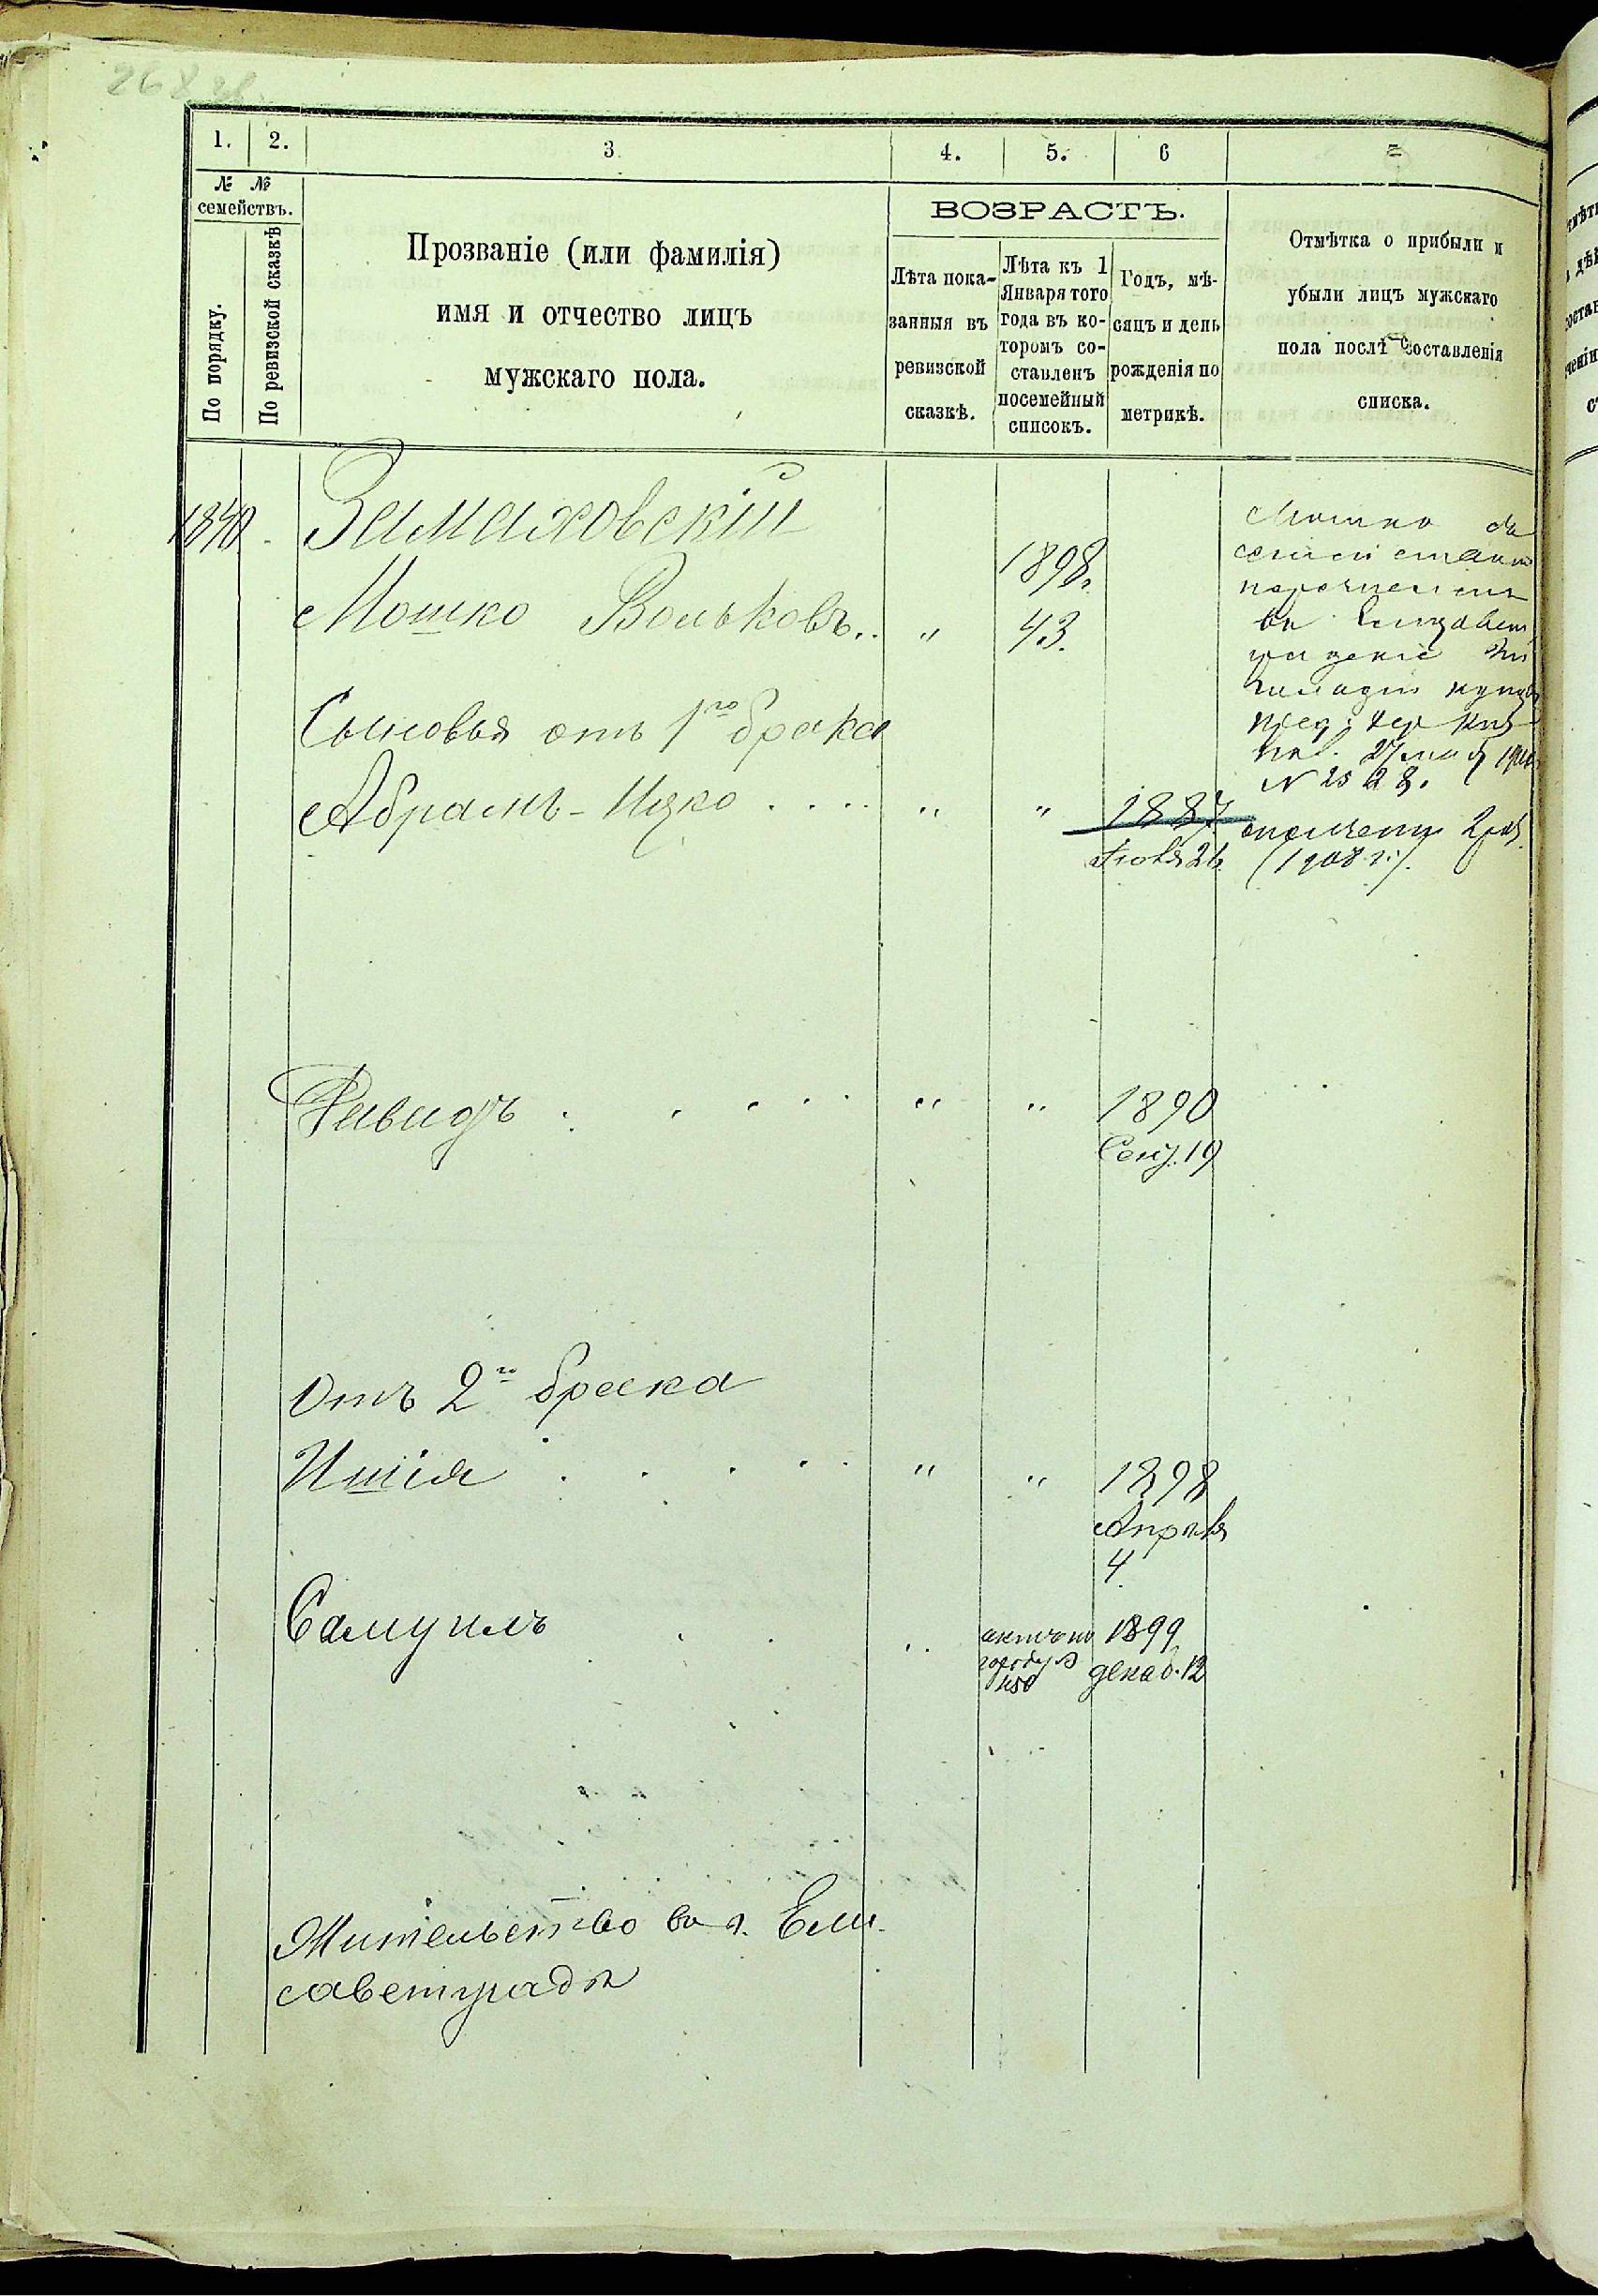 268 об.
1. 2. 3 4. 5. 6 7
№ №
семействъ.
По порядку.
По ревизской сказкѣ
Прозваніе (или фамилія)
имя и отчество лицъ
мужскаго пола.
ВОЗРАСТЪ.
Лѣта пока-
занныя въ
ревизской
сказкѣ.
Лѣта къ 1
Января того
года въ ко-
торомъ со-
ставленъ
посемейный
списокъ.
Годъ, мѣ-
сяцъ и день
рожденія по
метрикѣ.
Отмѣтка о прибыли и
убыли лицъ мужскаго
пола послѣ составленія
списка.
1840. Замаховскій
1898.
Мошко Вольковъ.. " 43.
Мошко съ
семьей
перечисленъ
въ Елизавет
градскіе
27 мая
N 2528.
Сыновья отъ 1го брака
Абрамъ-Ицко . . . . " " 1887
Іюля 26.
2
(1908 г.).
Давидъ . . . . . " " 1890
Сент. 19
Отъ 2го брака
Ишія . . . . . " " 1898
Апрѣля
4.
Самуилъ . . 1899
декаб. 12
Жительство въ г. Ели-
саветградѣ